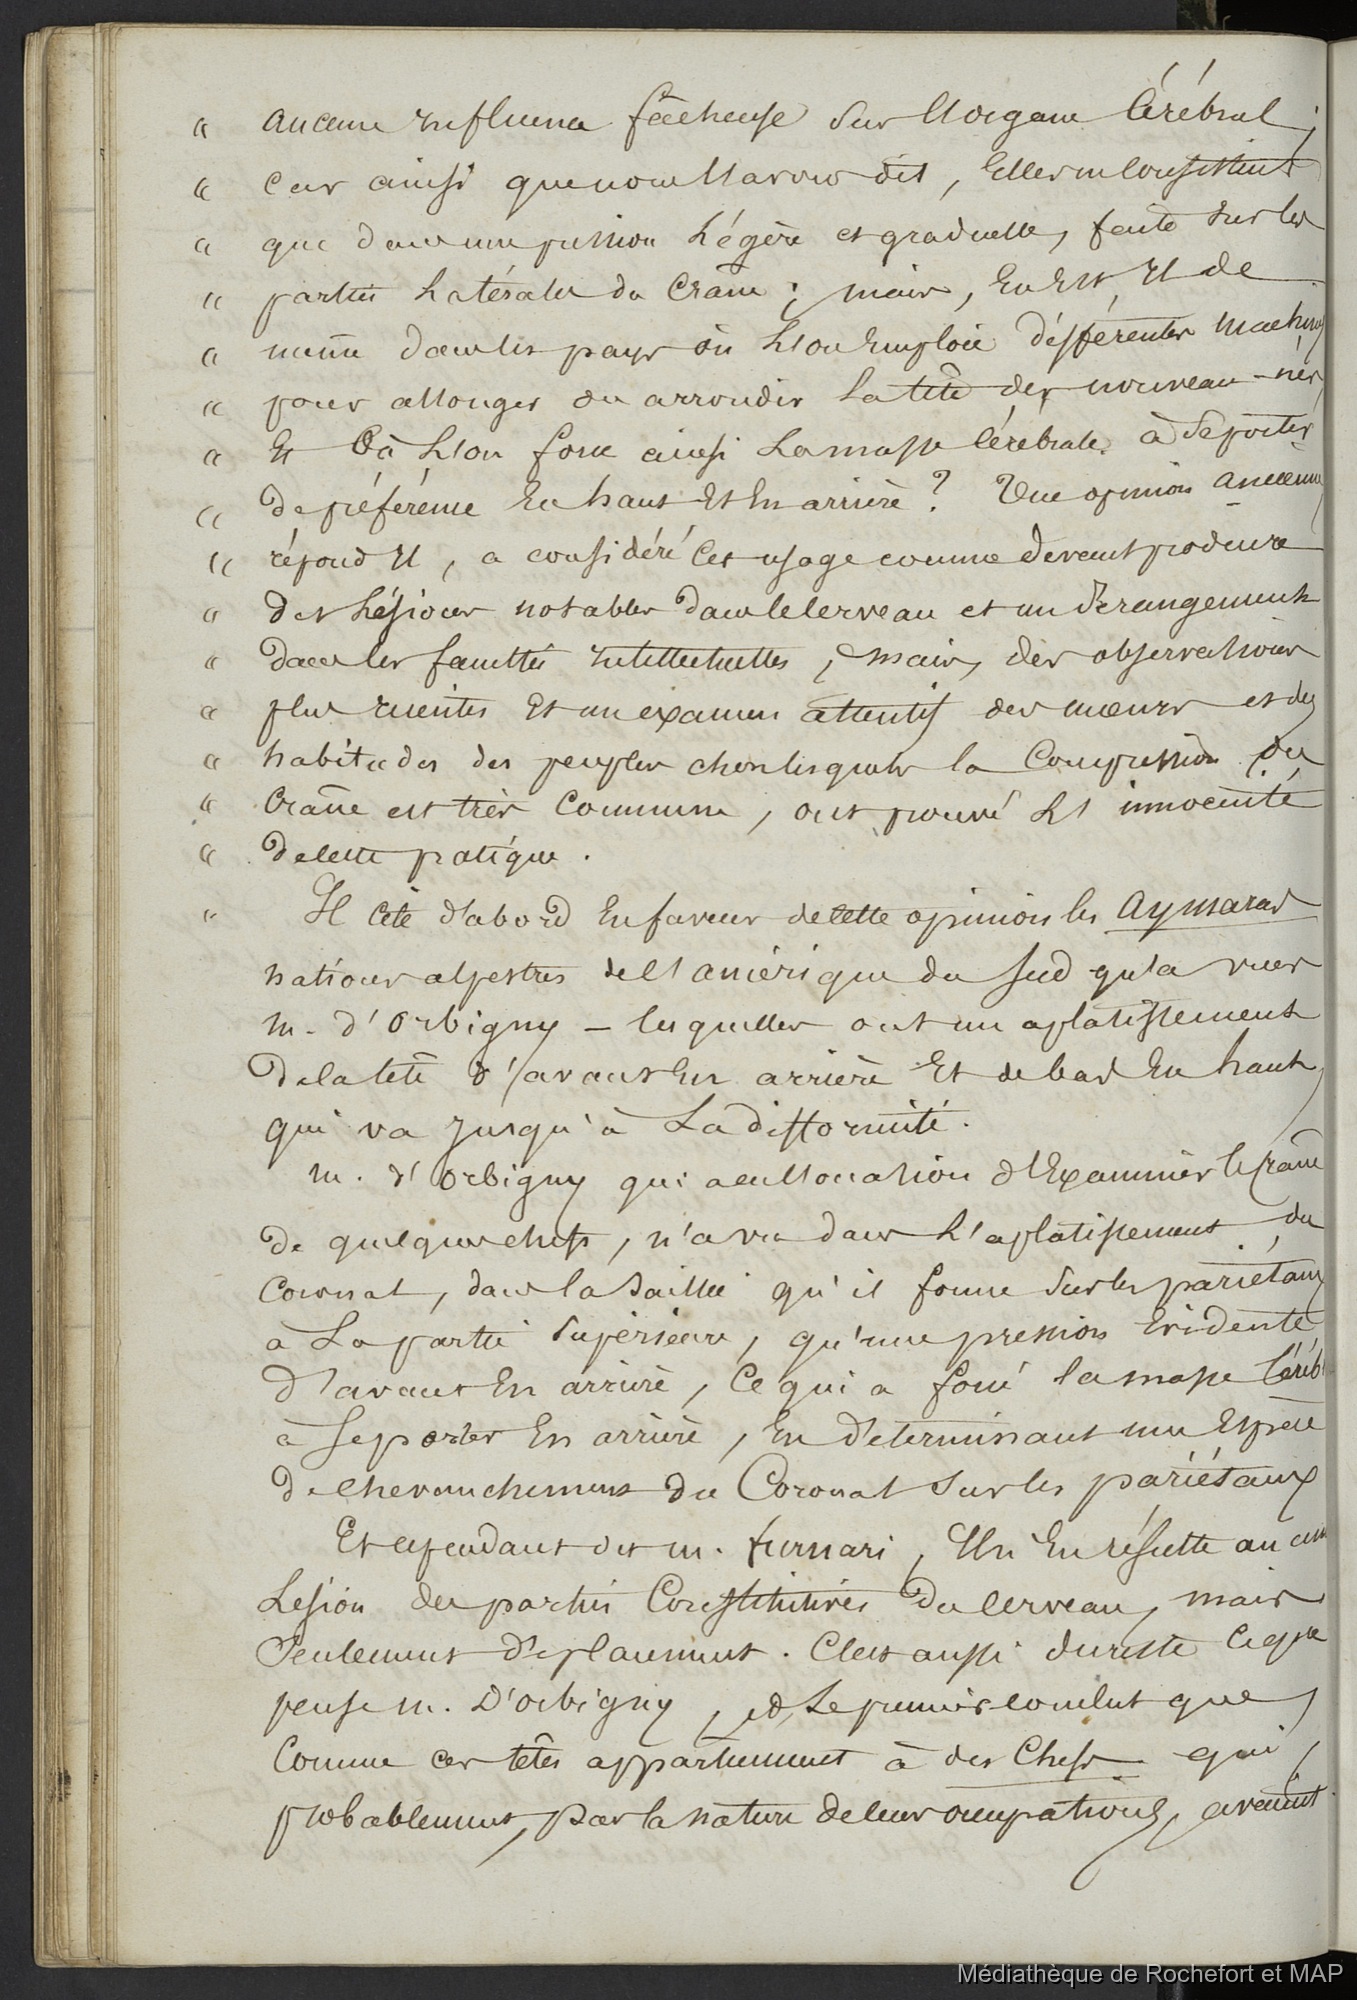 « aucune influence fâcheuse sur l'organe Cérébral ;
« car ainsi que nous l'avons dit, Elles ne consistent
« que dans une pression légère et graduelle, faite sur les
« parties latérales du Crâne ; mais, En Est Il de
« même dans les pays où l'on Emploie différentes machines
« pour allonger ou arrondir la tête des nouveau-nés,
« Et Où l'on force ainsi la masse Cérébrale à se porter
« De préférence En haut Et En arrière ? Une opinion ancienne,
« répond Il, a considéré Cet usage comme devant produire
« des lésions notables dans le Cerveau et un dérangement
« dans les facultés intellectuelles, mais, des observations
« plus récentes Et un examen attentif des mœurs et des
« habitudes des peuples chez lesquels la Compression du
« Crâne est très Commune, ont prouvé l'innocuité
« de Cette pratique.
« Il Cite d'abord En faveur de Cette opinion les Aymaras
nations alpestres de l'amérique du Sud qu'a vues
m. d'Orbigny – lesquelles ont un aplatissement
De la tête d'avant En arrière Et de bas En haut,
qui va Jusqu'à La difformité.
m. d'Orbigny qui a eu l'occasion d'Examiner le Crâne
de quelques chefs, n'a vu dans l'aplatissement du
Coronal, dans la Saillie qu'il forme Sur les pariétaux
à La partie Supérieure, qu'une pression Evidente
D'avant En arrière, Ce qui a forcé la masse Céréb
à Se porter En arrière, En déterminant une Espèce
de Chevauchement du Coronal Sur les pariétaux
Et cependant dit m. furnari, Il n'En résulte aucune
Lésion des parties Constitutives Du Cerveau, mais
Seulement déplacement. C'est aussi du reste Ce que
pense m. D'Orbigny, et Le premier conclut que,
Comme ces têtes appartiennent à des Chefs qui,
probablement, par la nature de leurs occupations, avaient
Médiathèque de Rochefort et MAP